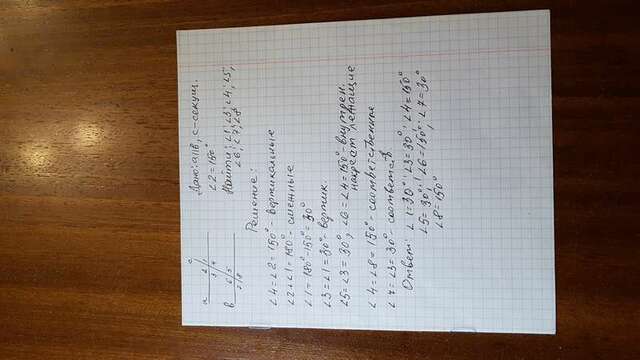 c
a 2 1
3 4
в 6 5
7 8
Дано: a||в, c-секущ.
∠2=150°
Найти: ∠1; ∠3; ∠4; ∠5;
∠6; ∠7; ∠8
Решение:
∠4=∠2=150°- вертикальные
∠2+∠1=180°- смежные
∠1=180°-150°=30°
∠3=∠1=30°- вертик.
∠5=∠3=30°, ∠6=∠4=150°-внутрен.
накрест лежащие
∠4=∠8=150°- соответственные
∠7=∠3=30°- соответств.
Ответ: ∠1=30°; ∠3=30°; ∠4=150°
∠5=30°; ∠6=150°; ∠7=30°
∠8=150°